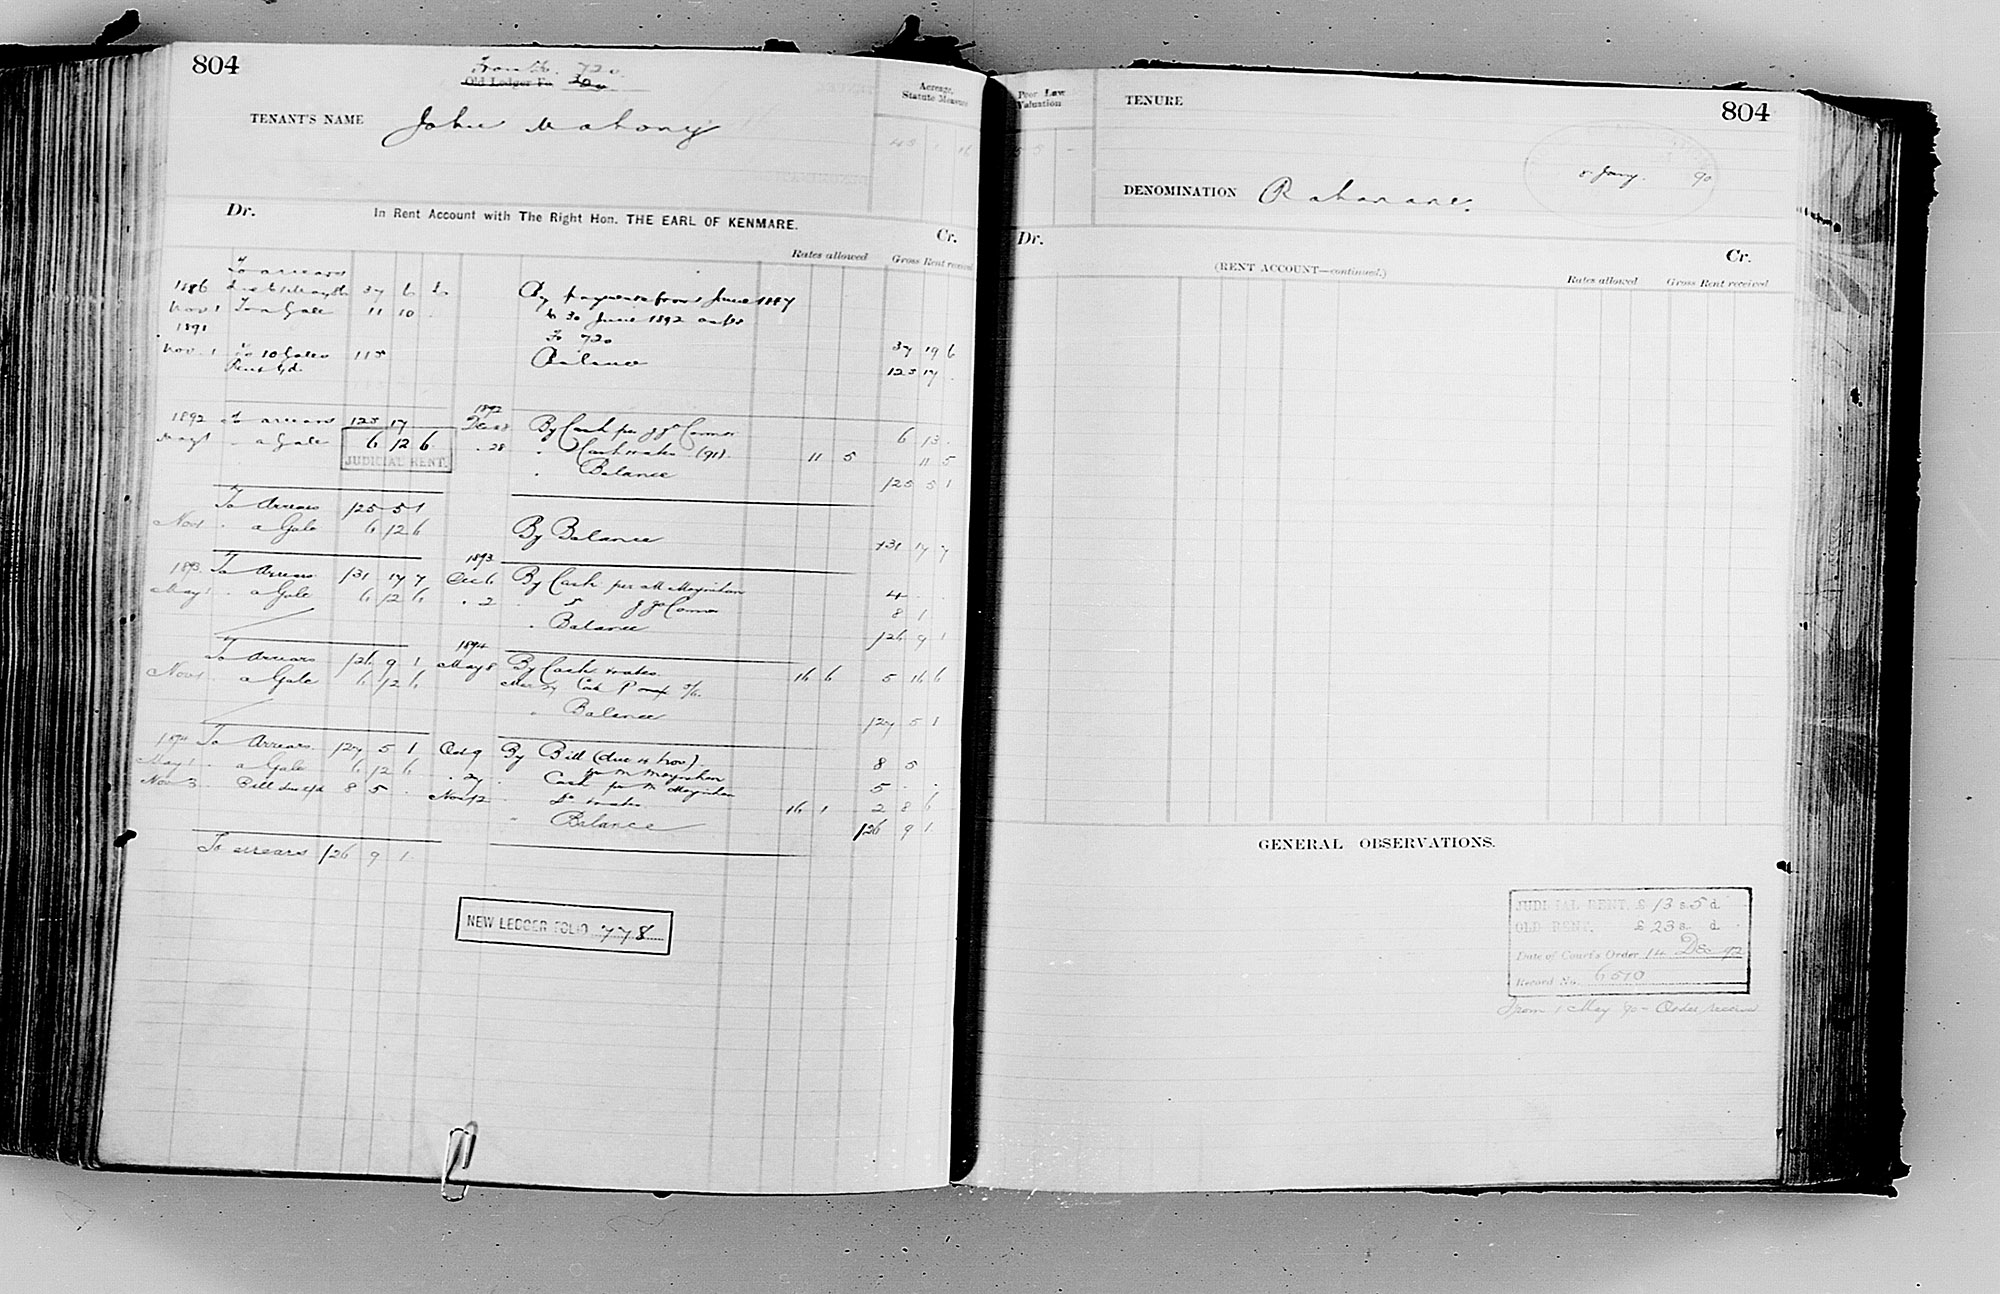 804
From fo. 720
Old Ledger Fo. 720
TENANT'S NAME John Mahony
Acreage, Statute Measure
Dr. In Rent Account with The Right Hon. THE EARL OF KENMARE. Cr.
Rates allowed Gross Rent received
To arrears
1886 37 6 6 By payments from June 1887
Nov 1 To a Gale 11 10 . to 30 June 1892 as per
1891 Fo 720 37 19 6
Nov. 1 To 10 Gales 115 Balance 123 17 .
1892 To arrears 123 17 1892 Dec 28 By Cash per J J O'Connor 6 13 .
May 1 " a Gale 6 12 6 " 28 " Cash & rates (91) 11 5 11 5
JUDICIAL RENT.
" Balance 125 5 1
To Arrears 125 5 1
Nov 1 " a Gale 6 12 6 By Balance 131 17 7
1893
1893 To Arrears 131 17 7 Dec 6 By Cash per M Moynihan 4 . .
May 1 " a Gale 6 12 6 " 2 " Do J J O'Connor 8 1
" Balance 126 9 1
1894
To Arrears 126 9 1 May 8 By Cash & rates 16 6 5 16 6
Nov 1 a Gale 6 12 6
" Balance 127 5 1
1894 To Arrears 127 5 1 Oct 9 By Bill (due 12 Nov) 8 5
May 1 " a Gale 6 12 6 per M Moynihan
" 27 " Cash per M Moynihan 5 . .
Nov 3 Bill due 8 5 . Nov 12 " Do & rates 16 1 2 8 6
" Balance 126 9 1
To arrears 126 9 1
NEW LEDGER FOLIO 778
Poor Law Valuation
TENURE
804
8 Jany. 90
DENOMINATION Rahanane.
Dr. (RENT ACCOUNT—continued.) Cr.
Rates allowed Gross Rent received
GENERAL OBSERVATIONS.
JUDICIAL RENT, £ 13 s. 5 d.
OLD RENT, £ 23 s. d.
Date of Court's Order 14 Dec 92
Record No. 6510
From 1 May 90 - Order received